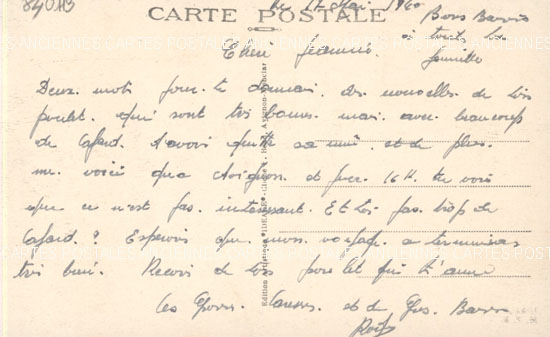 84013
CARTE POSTALE
le 17 Mai 1940
Bons Baisers
à toute la
famille
Chéri Jeannie
Deux mots pour te donner des nouvelles de ton
poulet qui sont très bonnes mais avec beaucoup
de Cafard d'avoir quitté sa mie et de plus
me voici qu'a Avignon et pour 16 H. tu vois
que ce n'est pas intéressant. Et toi pas trop de
Cafard ? Espérons que mon voyage a terminera
très bien. Recois de ton poulet qui t'aime
Ces Grosses Caresses et de Gros Baisers
Edition
ANCIENNES CARTES POSTALES